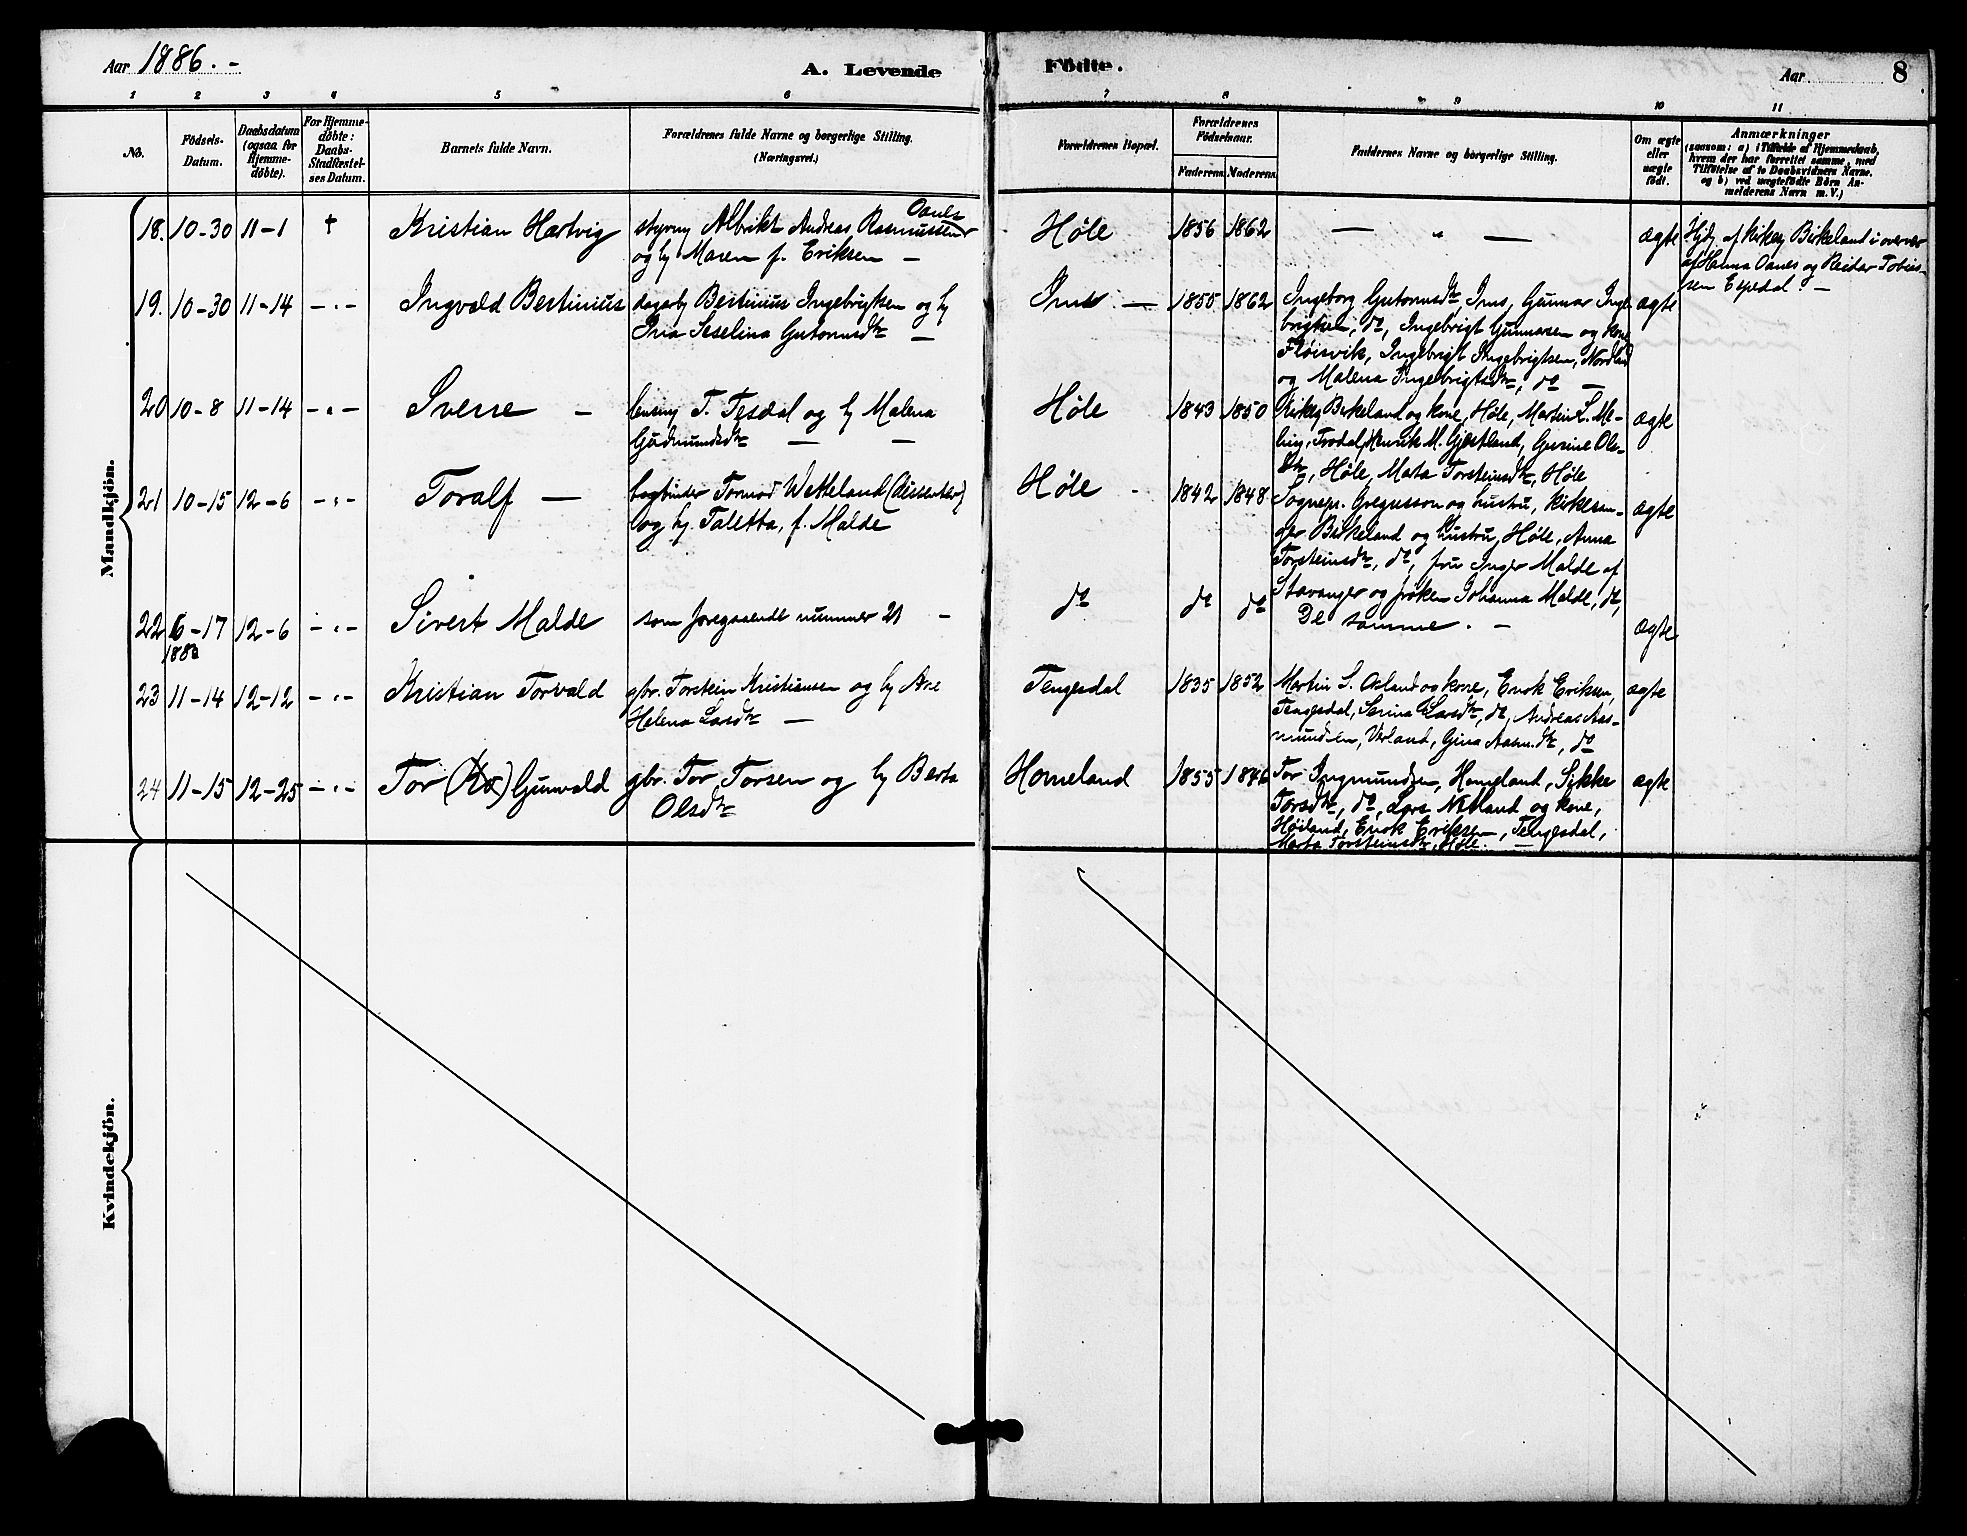 Aar 1886. -
A. Levende
Födte.
Aar
8
1 2 3 4 5 6 7 8 9 10 11
No.
Födsels-
Datum.
Daabsdatum
(ogsaa for
Hjemme-
döbte).
For Hjemme-
döbte:
Daabs-
Stadfæstel-
ses Datum.
Barnets fulde Navn.
Forældrenes fulde Navne og borgerlige Stilling.
(Næringsvei.)
Forældrenes Bopæl.
Forældrenes
Födselsaar.
Faderens. Moderens.
Faddernes Navne og borgerlige Stilling.
Om ægte
eller
uægte
födt.
Anmærkninger
(saasom: a) i Tilfælde af Hjemmedaab,
hvem der har forrettet samme, med
Tilföielse af to Daabsvidners Navne,
og b) ved uægtefödte Börn An-
melderens Navn m. V.)
Mandkjön.
18. 10-30 11-1 + Kristian Hartvig
Oanes
Albrikt Andreas Rasmussen
og h Maren f. Eriksen -
Høle 1856 1862 — " — ægte
af kirkes. Birkeland i overvær
af Hanna Oanes og Reidar Tobias-
sen Espedal. -
19. 10-30 11-14 - " - Ingvald Bertinius
Bertinius Ingebrigtsen og h
Ina Seselina Gutormsdtr -
Ims - 1855 1862 Ingeborg Gutormsdtr Ims, Gunnar Inge-
brigtsen, do, Ingebrigt Gunnarsen og kone
Fløisvik, Ingebrigt Ingebrigtsen, Nordland
og Malena Ingebrigtsdtr, do -
ægte
20 10-8 11-14 - " - Sverre -
T. Tesdal og h Malena
Gudmundsdtr - -
Høle 1843 1850 Kirkes. Birkeland og kone, Høle, Martin L. Me-
ling, Henrik M. Gjestland, Gurine Ols-
dtr, Høle, Marta Torsteinsdtr, Høle
ægte
21 10-15 12-6 - " - Toralf -
bogbinder Tormod Wetteland (dissenter)
og h. Taletta, f. Malde
Høle - 1842 1848 Sognepr. Gregersson og hustru, kirkesan-
ger Birkeland og hustru, Høle, Anna
Torsteinsdtr, do, fru Inger Malde af
Stavanger og frøken Johanna Malde, do,
ægte
22 6-17 12-6 - " - Sivert Malde
som foregaaende nummer 21 -
do do do De samme. -
ægte
23 11-14 12-12 - " - Kristian Torvald
gbr. Torstein Kristiansen og h Ane
Helena Larsdtr -
Tengesdal 1835 1852 Martin S. Osland og kone, Enok Eriksen,
Tengesdal, Serina Larsdtr, do, Andreas Aas-
mundsen, Verland, Gina Aasm.dtr, do
ægte
24 11-15 12-25 - " - Tor Gunvald
gbr. Tor Torsen og h Berta
Olsdtr
Homeland 1855 1846 Tor Ingmundsen, Homeland, Sikke
Torsdtr, do, Lars Netland og kone,
Høiland, Enok Eriksen, Tengesdal,
Marta Torsteinsdtr, Høle. -
ægte
Kvindekjön.